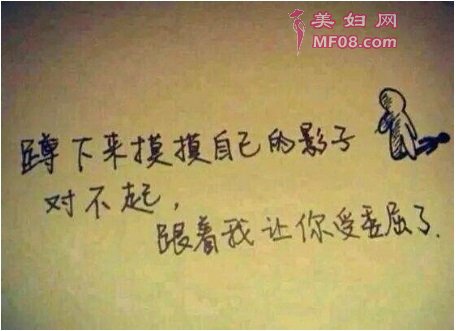 美妇网
MF08.com
蹲下来摸摸自己的影子
对不起,
跟着我让你受委屈了.